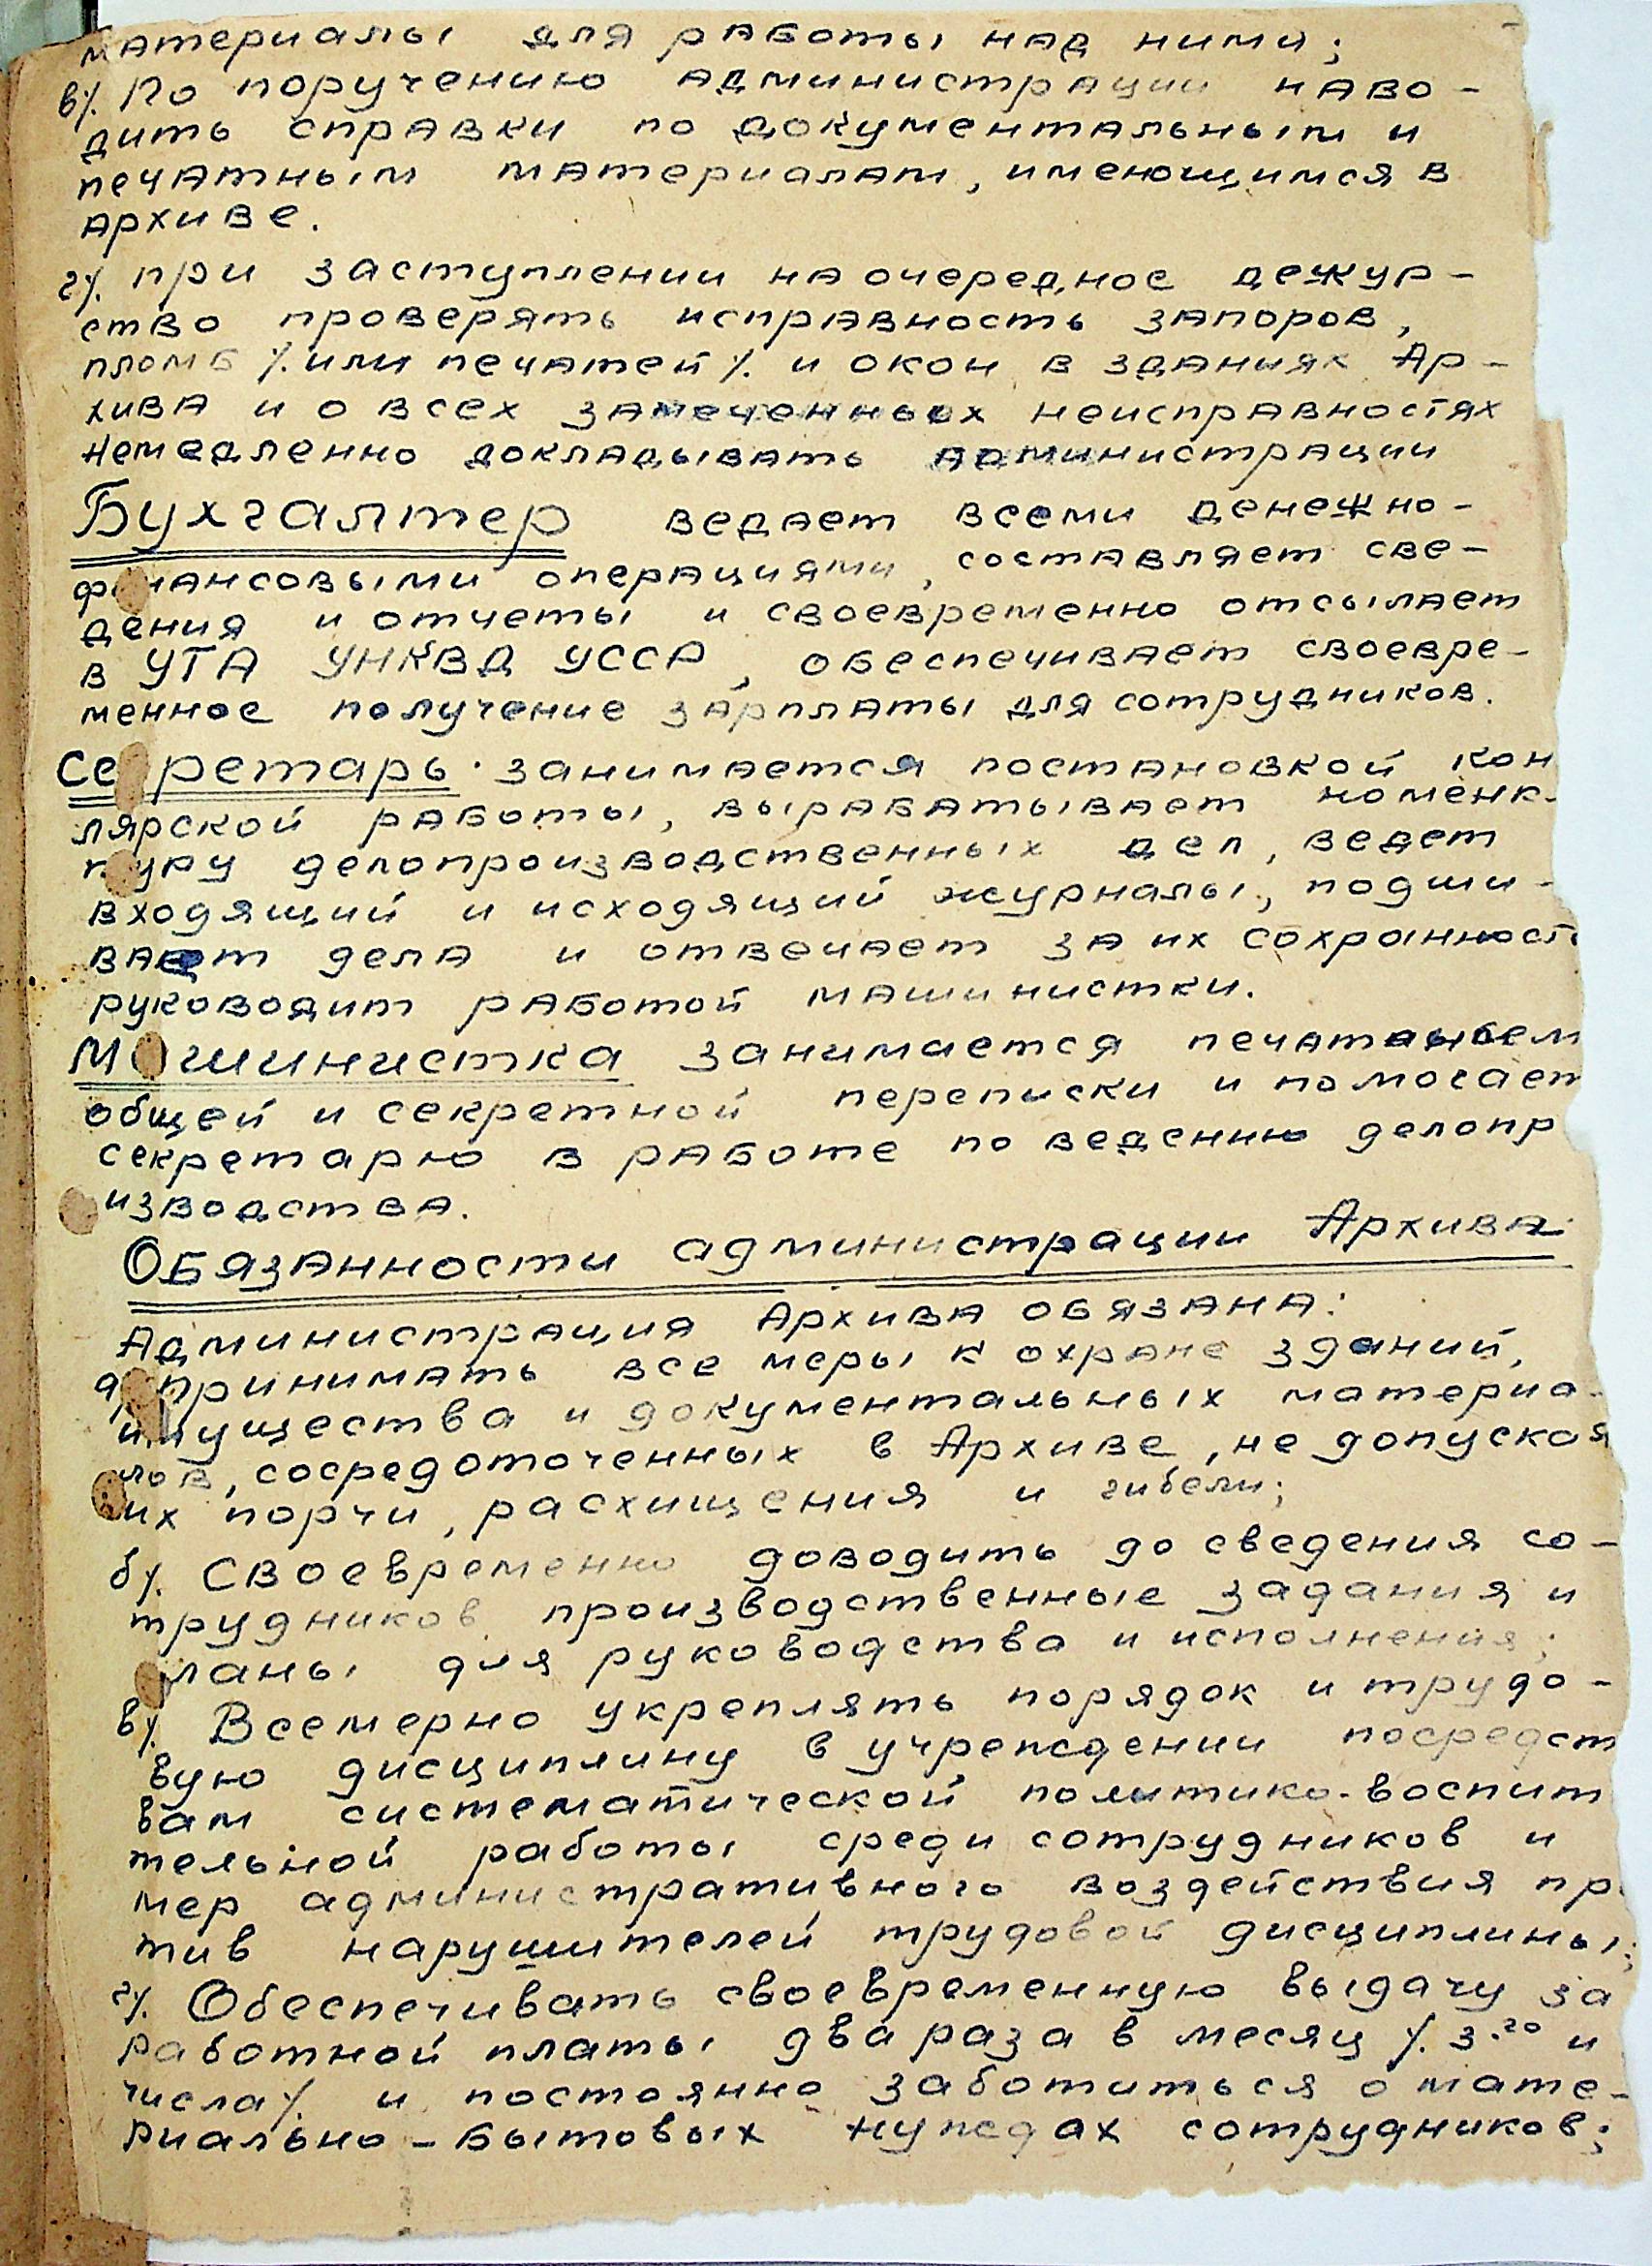 материалы для работы над ними;
в/. По поручению администрации наво-
дить справки по документальным и
печатным материалам, имеющимся в
архиве.
г/. при заступлении на очередное дежур-
ство проверять исправность запоров,
пломб /. или печатей /. и окон в зданиях Ар-
хива и о всех замеченных неисправностях
немедленно докладывать администрации
Бухгалтер ведает всеми денежно-
финансовыми операциями, составляет све-
дения и отчеты и своевременно отсылает
в УГА УНКВД УССР, обеспечивает своевре-
менное получение зарплаты для сотрудников.
Секретарь. занимается постановкой кан
лярской работы, вырабатывает номенк-
туру делопроизводственных дел, ведет
входящий и исходящий журналы, подши-
вает дела и отвечает за их сохранност
руководит работой машинистки.
Машинистка занимается
общей и секретной переписки и помогает
секретарю в работе по ведению делопр
изводства.
Обязанности администрации Архива
Администрация Архива обязана:
а/. принимать все меры к охране зданий,
имущества и документальных материа-
лов, сосредоточенных в Архиве, не допуская
их порчи, расхищения и гибели;
б/. Своевременно доводить до сведения со-
трудников производственные задания и
планы для руководства и исполнения;
в/. Всемерно укреплять порядок и трудо-
вую дисциплину в учреждении посредст
вам систематической политико-воспит
тельной работы среди сотрудников и
мер административного воздействия пр
тив нарушителей трудовой дисциплины;
г/. Обеспечивать своевременную выдачу за
работной платы два раза в месяц /. 3.го и
числа/. и постоянно заботиться о мате-
риально-бытовых нуждах сотрудников;